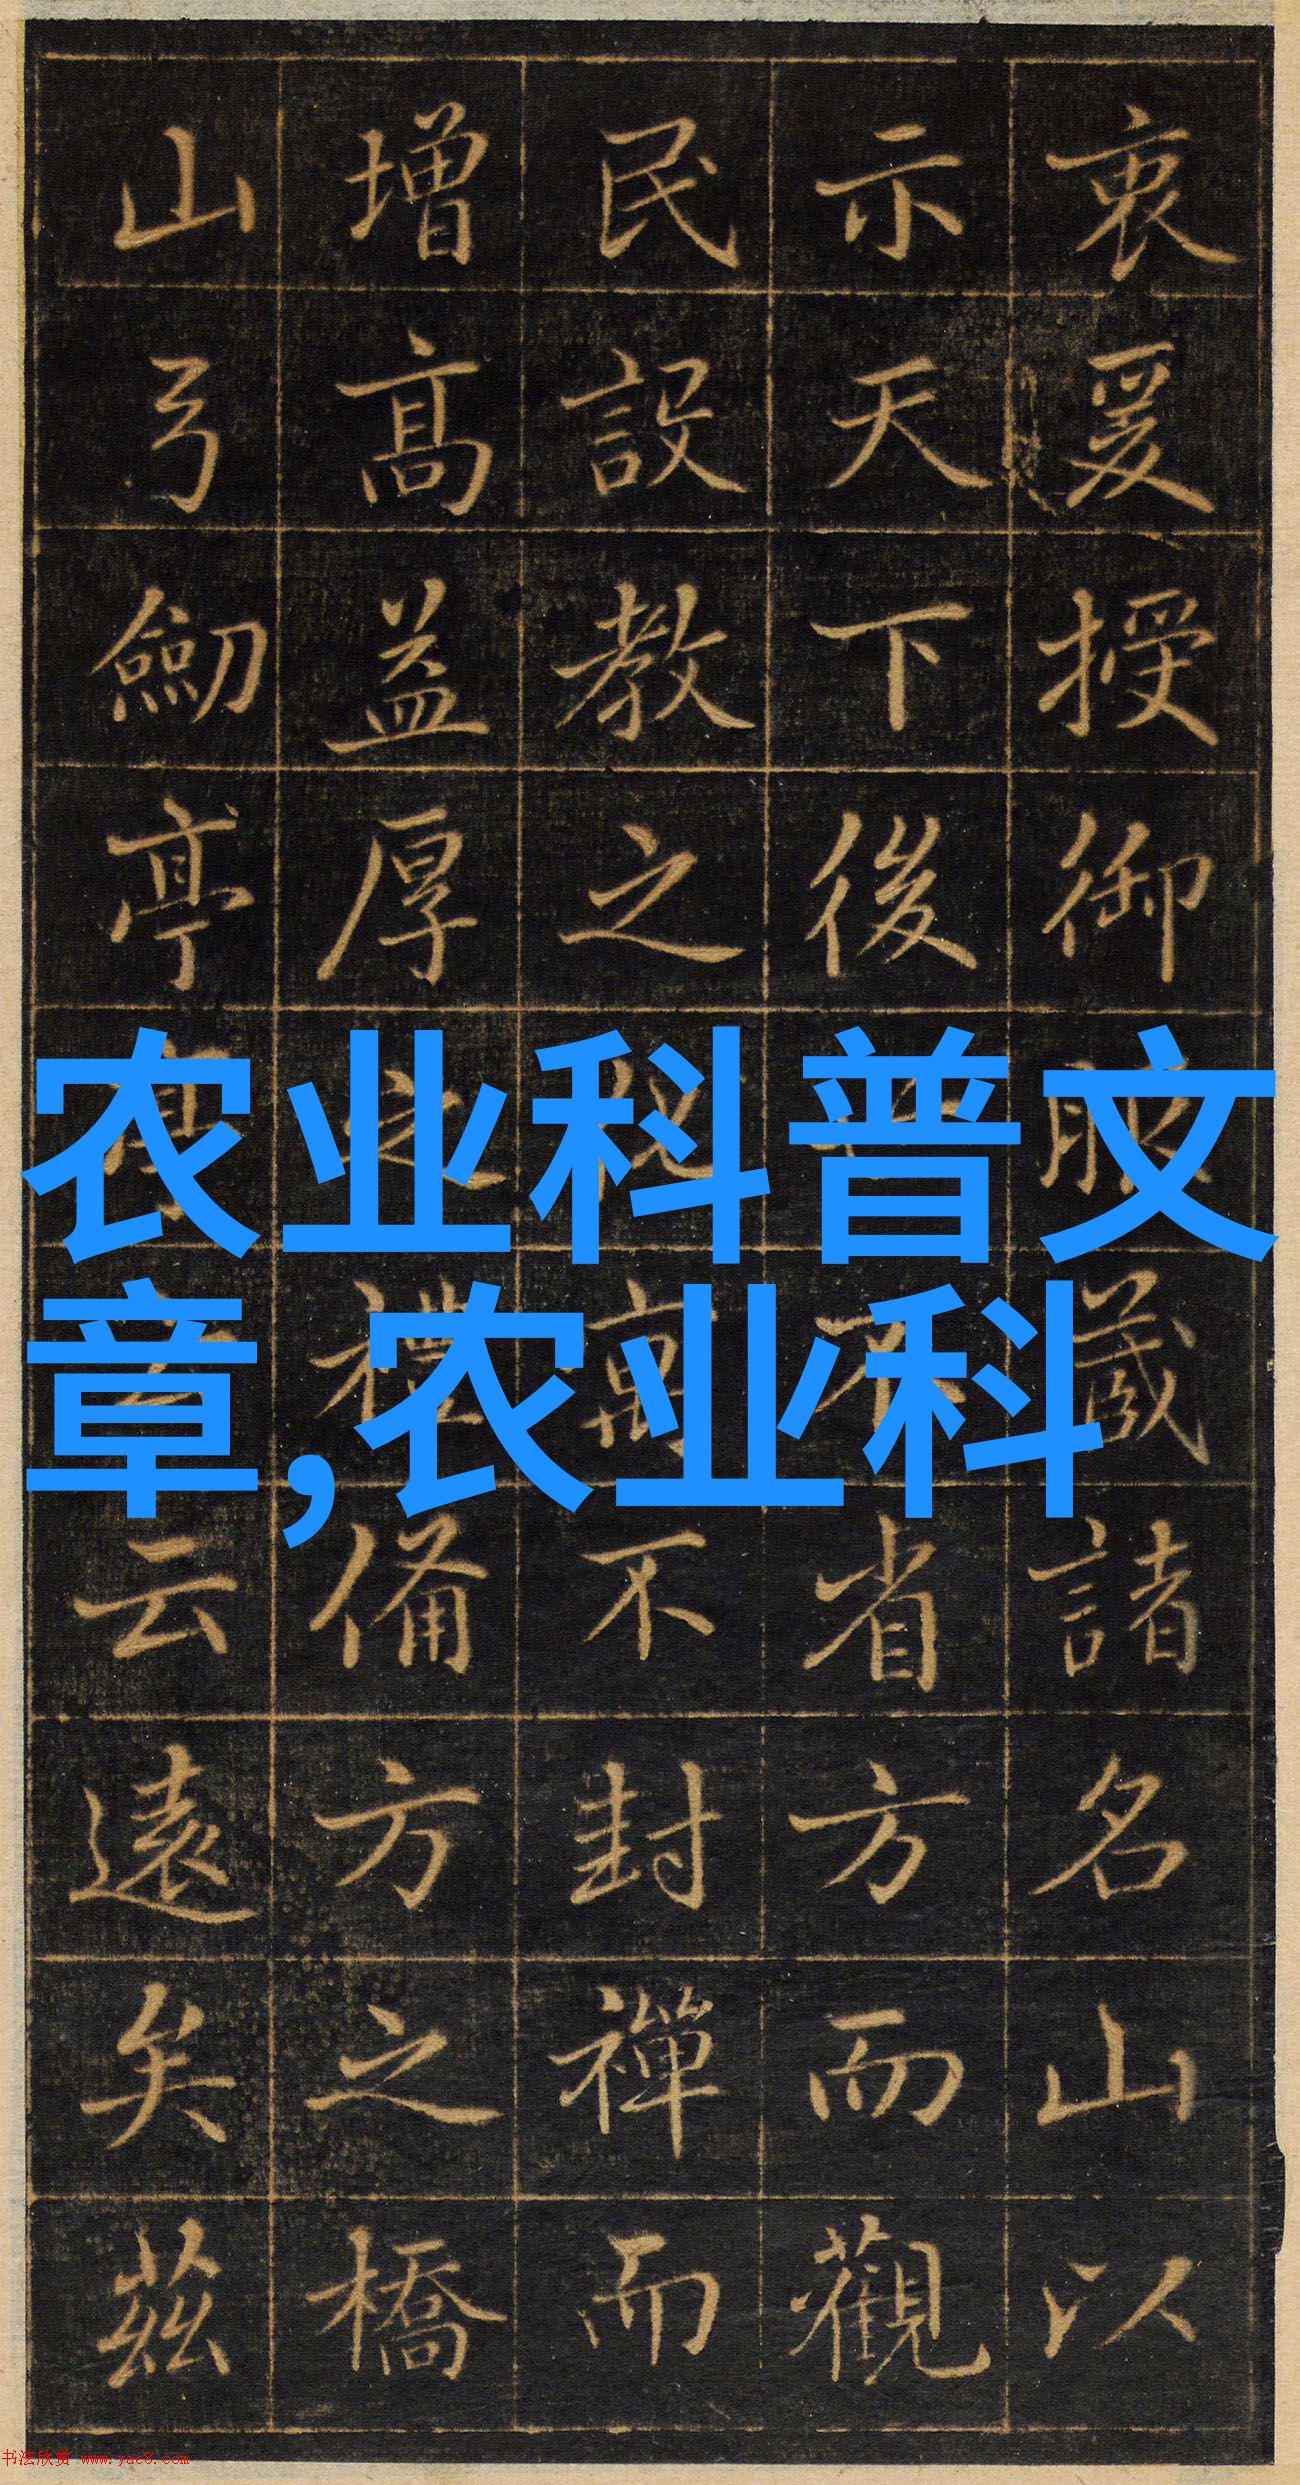 衷爰授御服蔵諸名山以
示天下後不省方而觀
民設教之萬不封禪而
增高益厚禮備方之橋
山弓劒亭云遠矣茲
农业科普文
章,农业科
书法欣赏 www.yac8.com